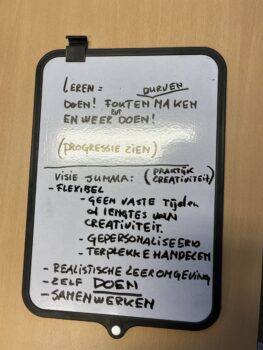 LEREN = DURVEN
DOEN! FOUTEN MAKEN
EN WEER DOEN!
(PROGRESSIE ZIEN)
VISIE JUMMA: (PRAKTIJK
CREATIVITEIT)
- FLEXIBEL
- GEEN VASTE TIJDEN
of LENGTES VAN
CREATIVITEIT.
- GEPERSONALISEERD
- TERPLEKKE HANDELEN
- REALISTISCHE LEEROMGEVING
- ZELF DOEN
- SAMENWERKEN